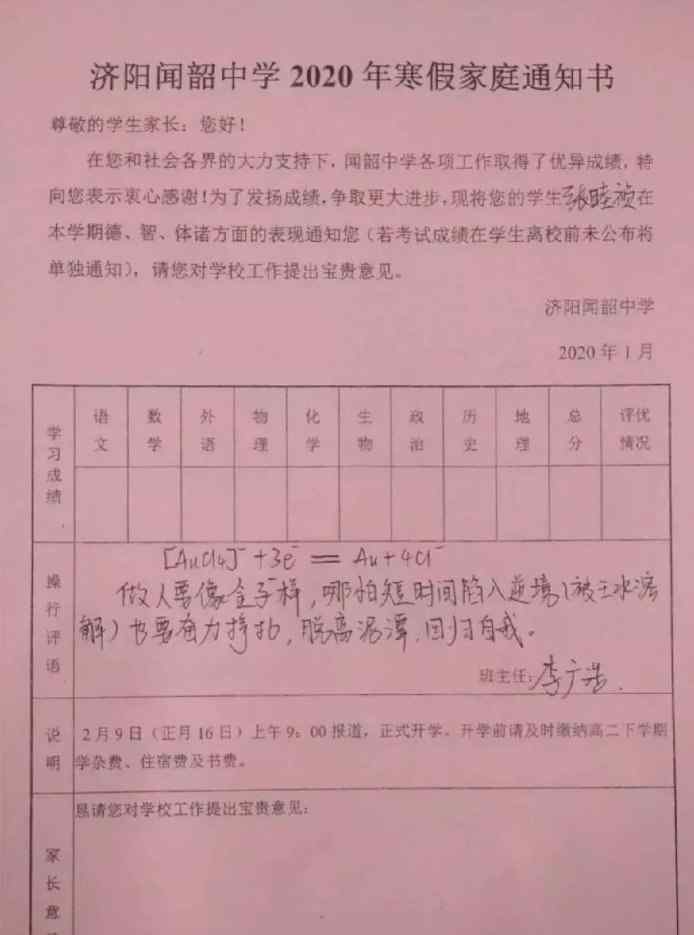 济阳闻韶中学 2020 年寒假家庭通知书
尊敬的学生家长：您好！
在您和社会各界的大力支持下，闻韶中学各项工作取得了优异成绩，特
向您表示衷心感谢！为了发扬成绩，争取更大进步，现将您的学生张睦祯在
本学期德、智、体诸方面的表现通知您（若考试成绩在学生离校前未公布将
单独通知），请您对学校工作提出宝贵意见。
济阳闻韶中学
2020 年 1 月
学习成绩
语文 数学 外语 物理 化学 生物 政治 历史 地理 总分 评优情况
操行评语
[AuCl4]⁻ +3e⁻ == Au+4Cl⁻
做人要像金子一样，哪怕短时间陷入逆境（被王水溶
解）也要奋力挣扎，脱离泥潭，回归自我。
班主任：李广浩.
说明
2 月 9 日（正月 16 日）上午 9：00 报道，正式开学。开学前请及时缴纳高二下学期
学杂费、住宿费及书费。
恳请您对学校工作提出宝贵意见：
家长意